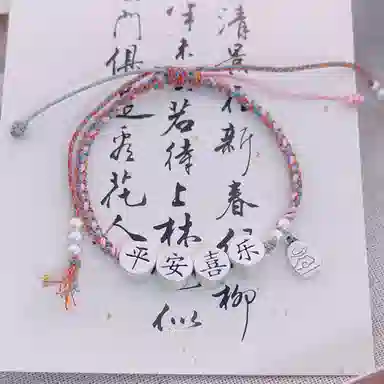 清景在新春绿柳
未
若待上林
似
门俱是看花人
平安喜乐